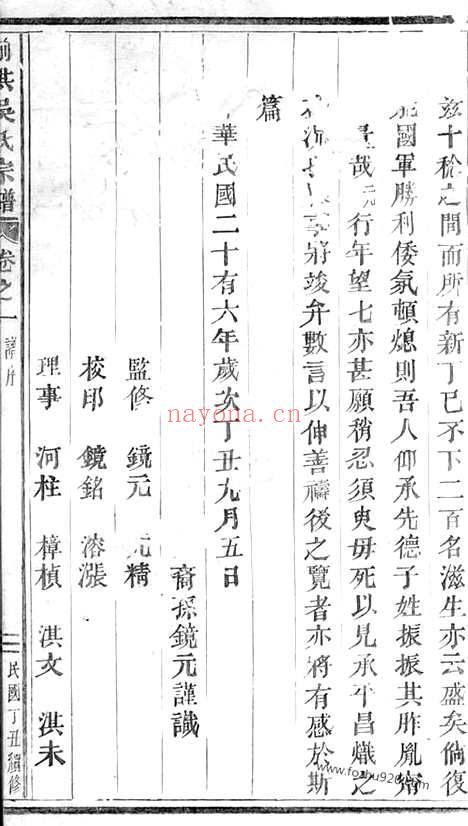 茲十稔之間而所有新丁已不下二百名滋生亦云盛矣倘復
國軍勝利倭氛頓熄則吾人仰承先德子姓振振其胙胤
哉元行年望七亦甚願稍忍須臾毋死以見承平昌熾之
將竣弁數言以伸善禱後之覽者亦將有感於斯
篇
華民國二十有六年歲次丁丑九月五日
裔孫鏡元謹識
監修 鏡元 元精
校印 鏡銘 溶漲
理事 河柱 樟楨 淇文 淇未
洪吳氏宗譜 卷之一 譜序
民國丁丑續修
nayona.cn